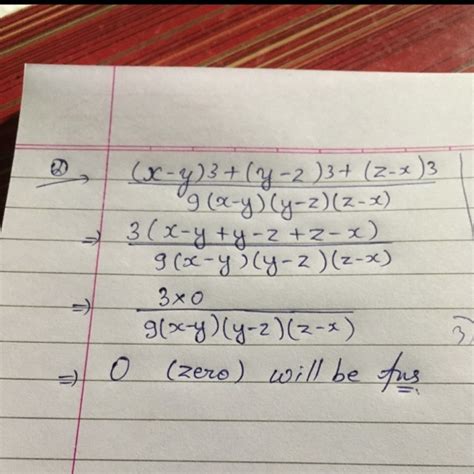 ② → (x-y)3+(y-z)3+(z-x)3
9(x-y)(y-z)(z-x)
⇒ 3(x-y+y-z+z-x)
9(x-y)(y-z)(z-x)
⇒ 3×0
9(x-y)(y-z)(z-x)
3)
⇒ 0 (zero) will be Ans